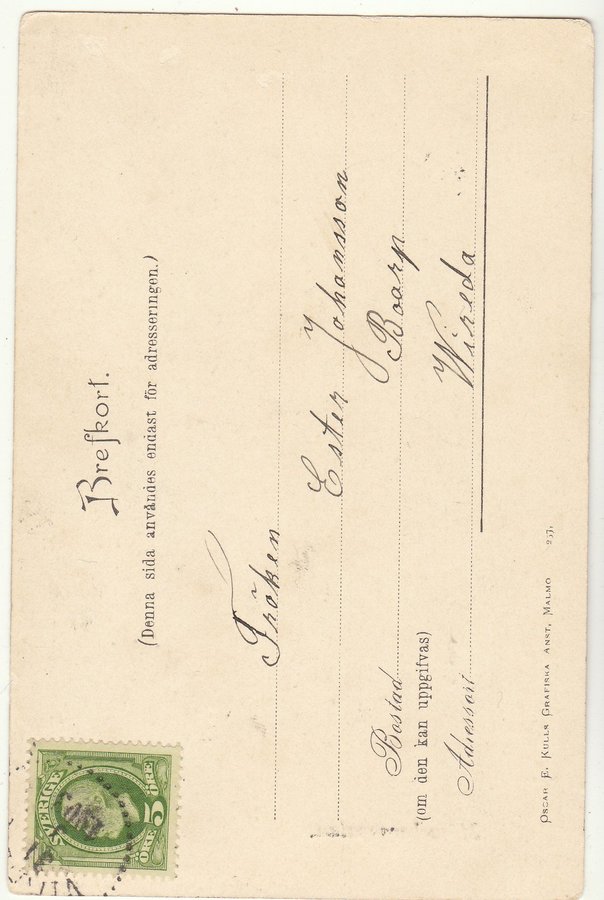 Brefkort.
(Denna sida användes endast för adresseringen.)
Fröken
Ester Johansson
Bostad Boarp
(om den kan uppgifvas)
Adressort Wireda
OSCAR E. KULLS GRAFISKA ANST, MALMÖ 257,
SVERIGE
5
ÖRE ÖRE